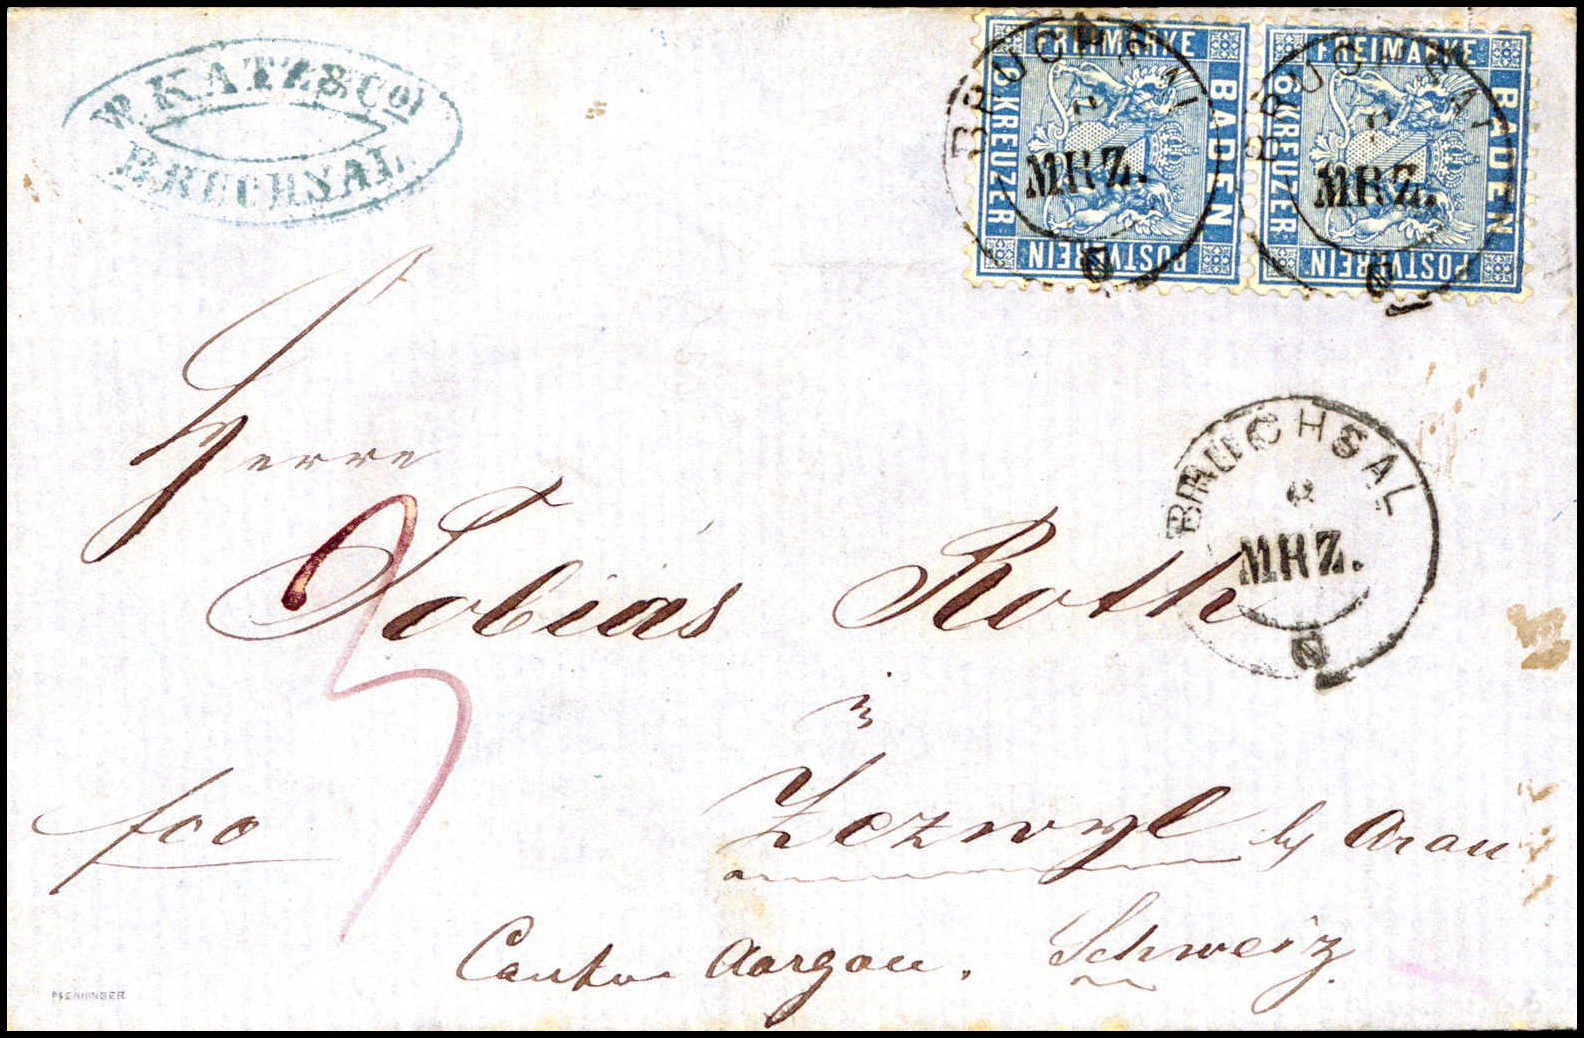 W. KATZ & CO
BRUCHSAL
FREIMARKE
6 KREUZER
BADEN
POSTVEREIN
FREIMARKE
6 KREUZER
BADEN
POSTVEREIN
BRUCHSAL
MRZ.
BRUCHSAL
MRZ.
Herrn
Tobias Roth
BRUCHSAL
MRZ.
in
3
fco
Zezwyl by Arau
Canton Aargau. Schweiz.
PFENNINGER